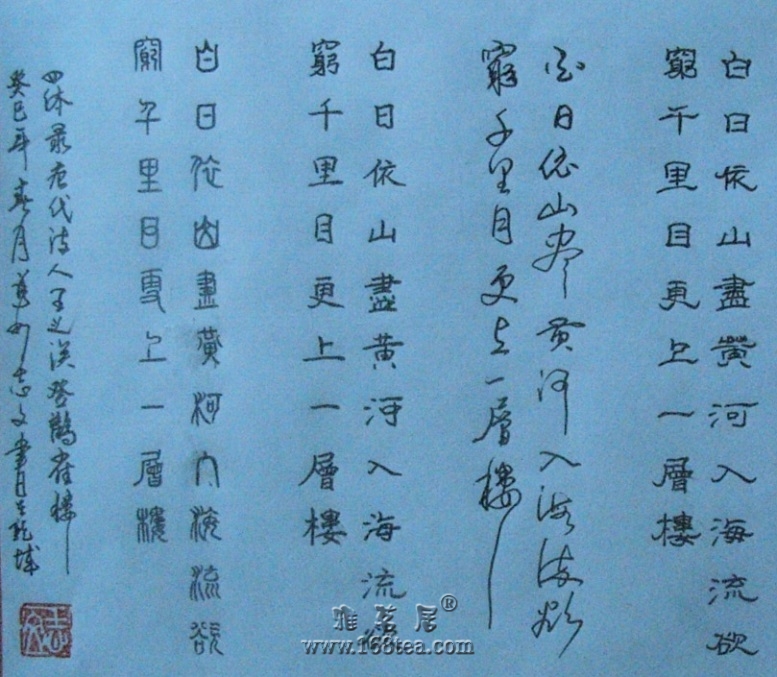 白日依山盡黄河入海流欲
窮千里目更上一層樓
白日依山盡黄河入海流欲
窮千里目更上一層樓
白日依山盡黄河入海流欲
窮千里目更上一層樓
白日依山盡黄河入海流欲
窮千里目更上一層樓
四体录唐代诗人王之涣登鹳雀樓
癸巳年春月志文書
志文
雅茗居®
www.168tea.com